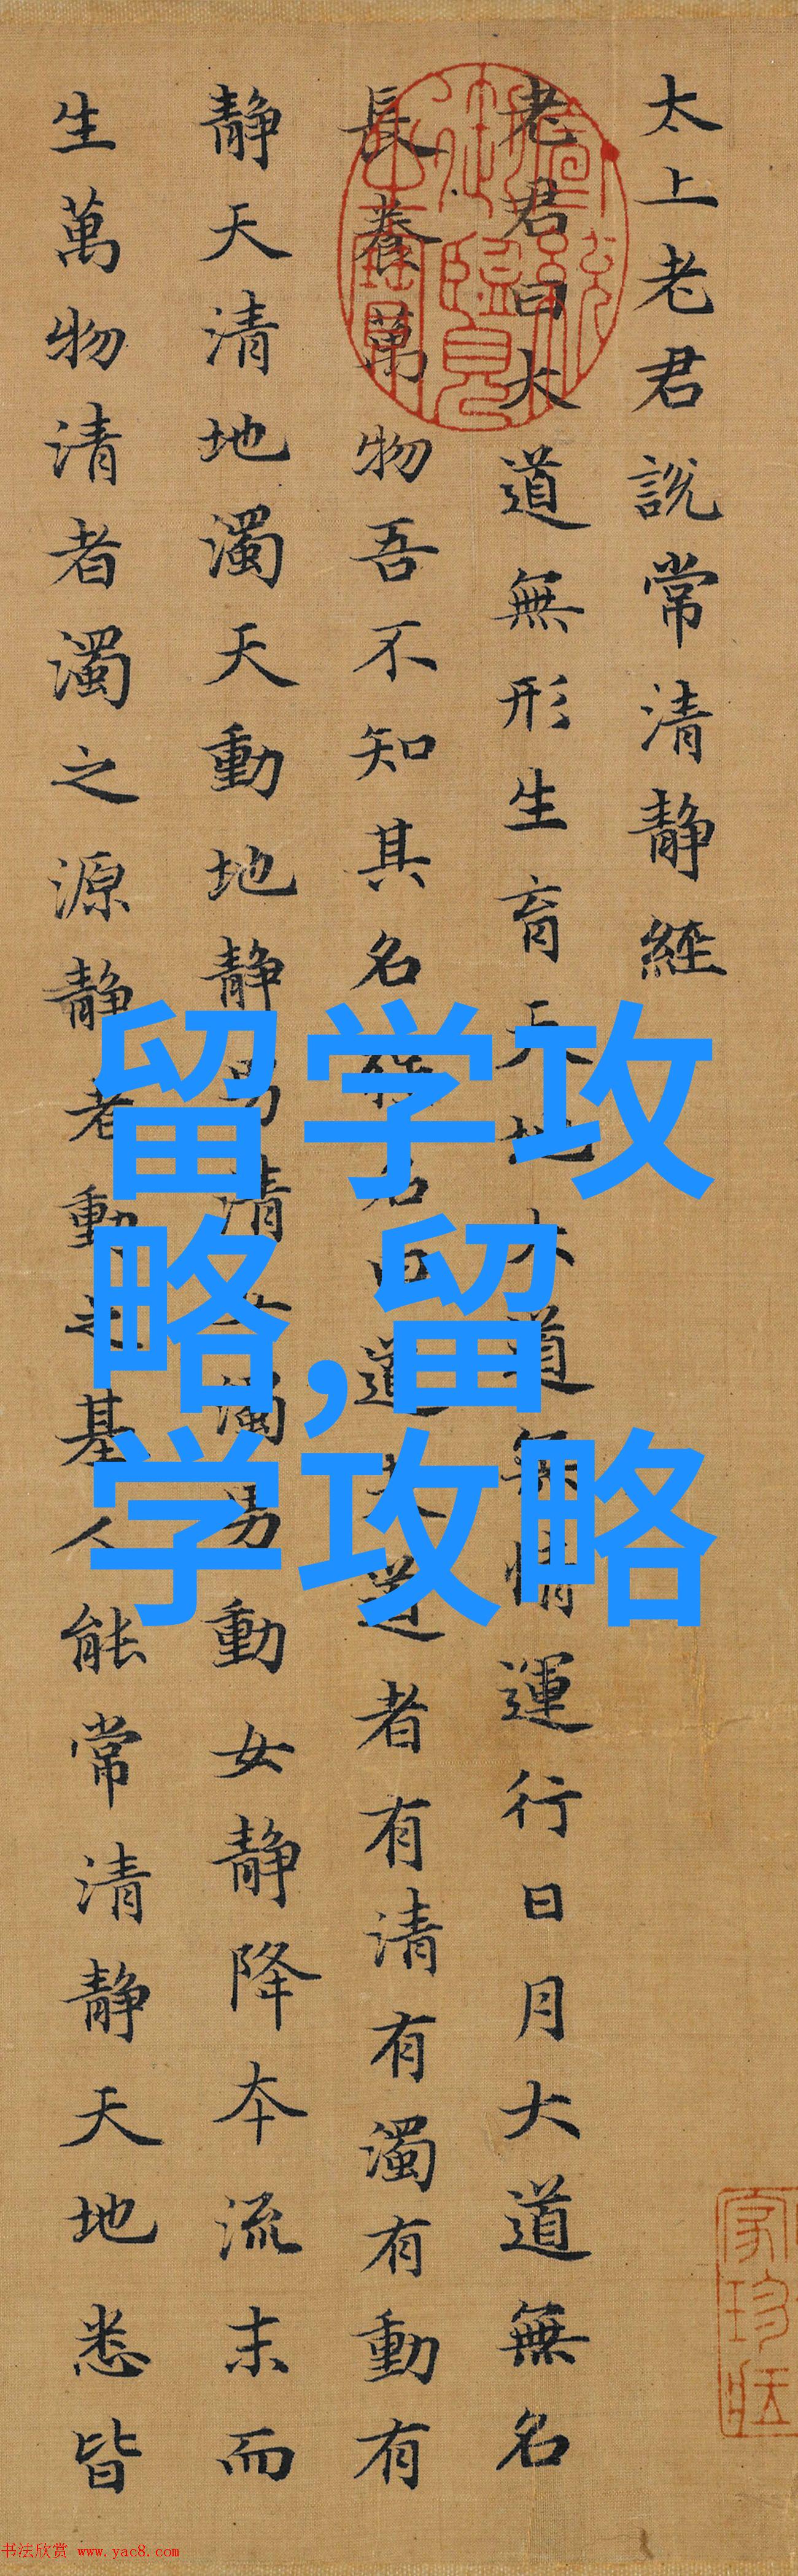 太上老君說常清静經
老君曰大道無形生育天地大道無情運行日月大道無名
長養萬物吾不知其名強名曰道夫道者有清有濁有動有
静天清地濁天動地静男清女濁男動女静降本流末而
生萬物清者濁之源静者動之基人能常清静天地悉皆
宣統
御覽
之寶
留学攻
略,留
学攻略
书法欣赏 www.yac8.com